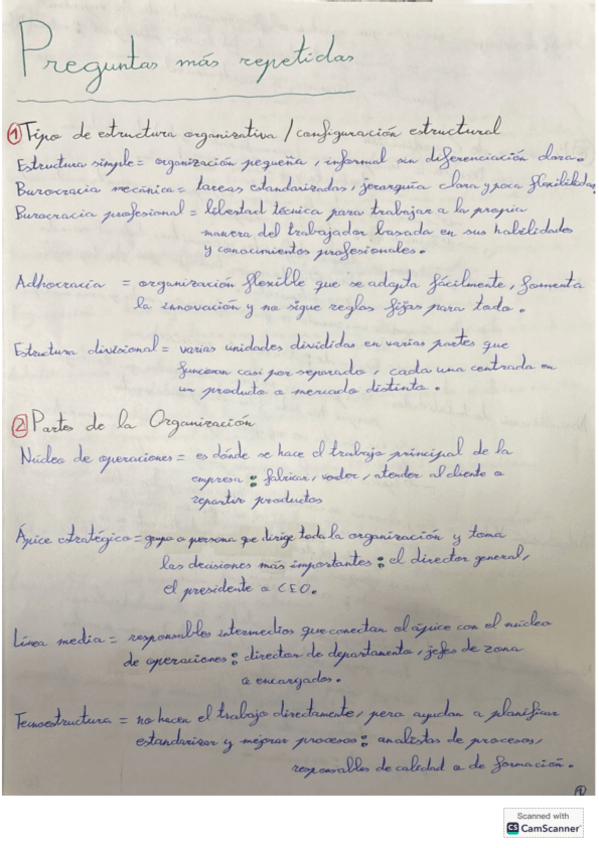 Preguntas más repetidas
1 Tipo de estructura organizativa / configuración estructural
Estructura simple = organización pequeña, informal sin diferenciación clara.
Burocracia mecánica = tareas estandarizadas, jerarquía clara y poca flexibilidad.
Burocracia profesional = libertad técnica para trabajar a la propia
manera del trabajador basada en sus habilidades
y conocimientos profesionales.
Adhocracia = organización flexible que se adapta fácilmente, fomenta
la innovación y no sigue reglas fijas para todo.
Estructura divisional = varias unidades divididas en varias partes que
funcionan casi por separado, cada una centrada en
un producto o mercado distinto.
2 Partes de la Organización
Núcleo de operaciones = es dónde se hace el trabajo principal de la
empresa: fabricar, vender, atender al cliente o
repartir productos
Ápice estratégico = grupo o persona que dirige toda la organización y toma
las decisiones más importantes: el director general,
el presidente o CEO.
Línea media = responsables intermedios que conectan el ápice con el núcleo
de operaciones: director de departamento, jefes de zona
o encargados.
Tecnoestructura = no hacen el trabajo directamente, pero ayudan a planificar
estandarizar y mejorar procesos: analistas de procesos,
responsables de calidad o de formación.
1
Scanned with
CS CamScanner